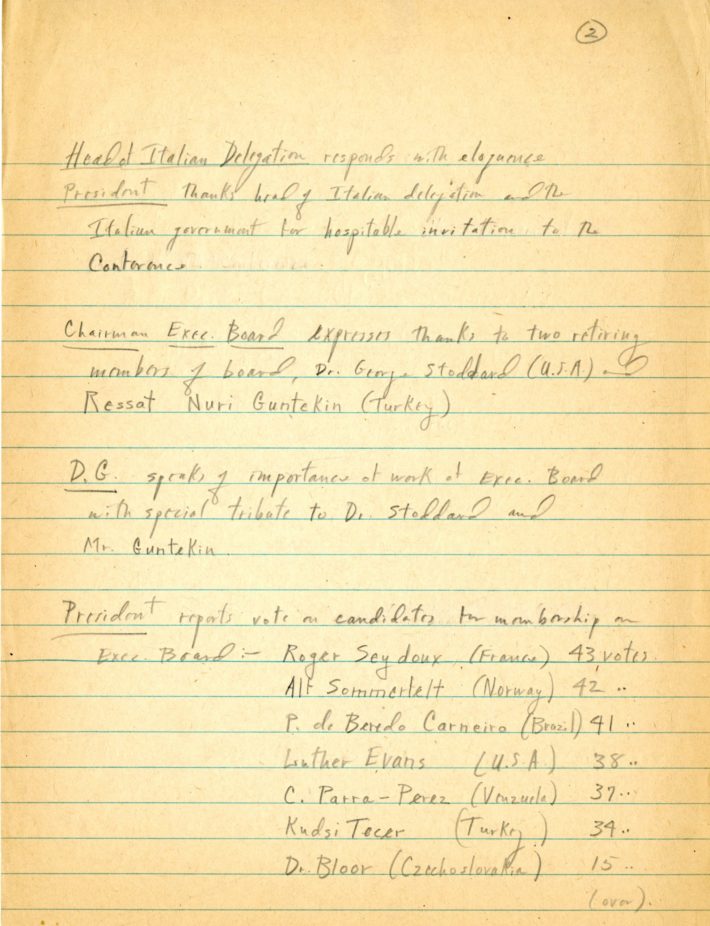 2
Head of Italian Delegation responds with eloquence
President thanks head of Italian delegation and the
Italian government for hospitable invitation to the
Conference.
Chairman Exec. Board expresses thanks to two retiring
members of board, Dr. George Stoddard (U.S.A.) and
Ressat Nuri Guntekin (Turkey)
D.G. speaks of importance of work of Exec. Board
with special tribute to Dr. Stoddard and
Mr. Guntekin.
President reports vote on candidates for membership on
Exec Board :- Roger Seydoux (France) 43 votes.
Alf Sommerfelt (Norway) 42 "
P. de Beredo Carneiro (Brazil) 41 "
Luther Evans (U.S.A.) 38 "
C. Parra-Perez (Venzuela) 37 "
Kudsi Tecer (Turkey) 34 "
Dr. Bloor (Czechoslovakia) 15 "
(over).